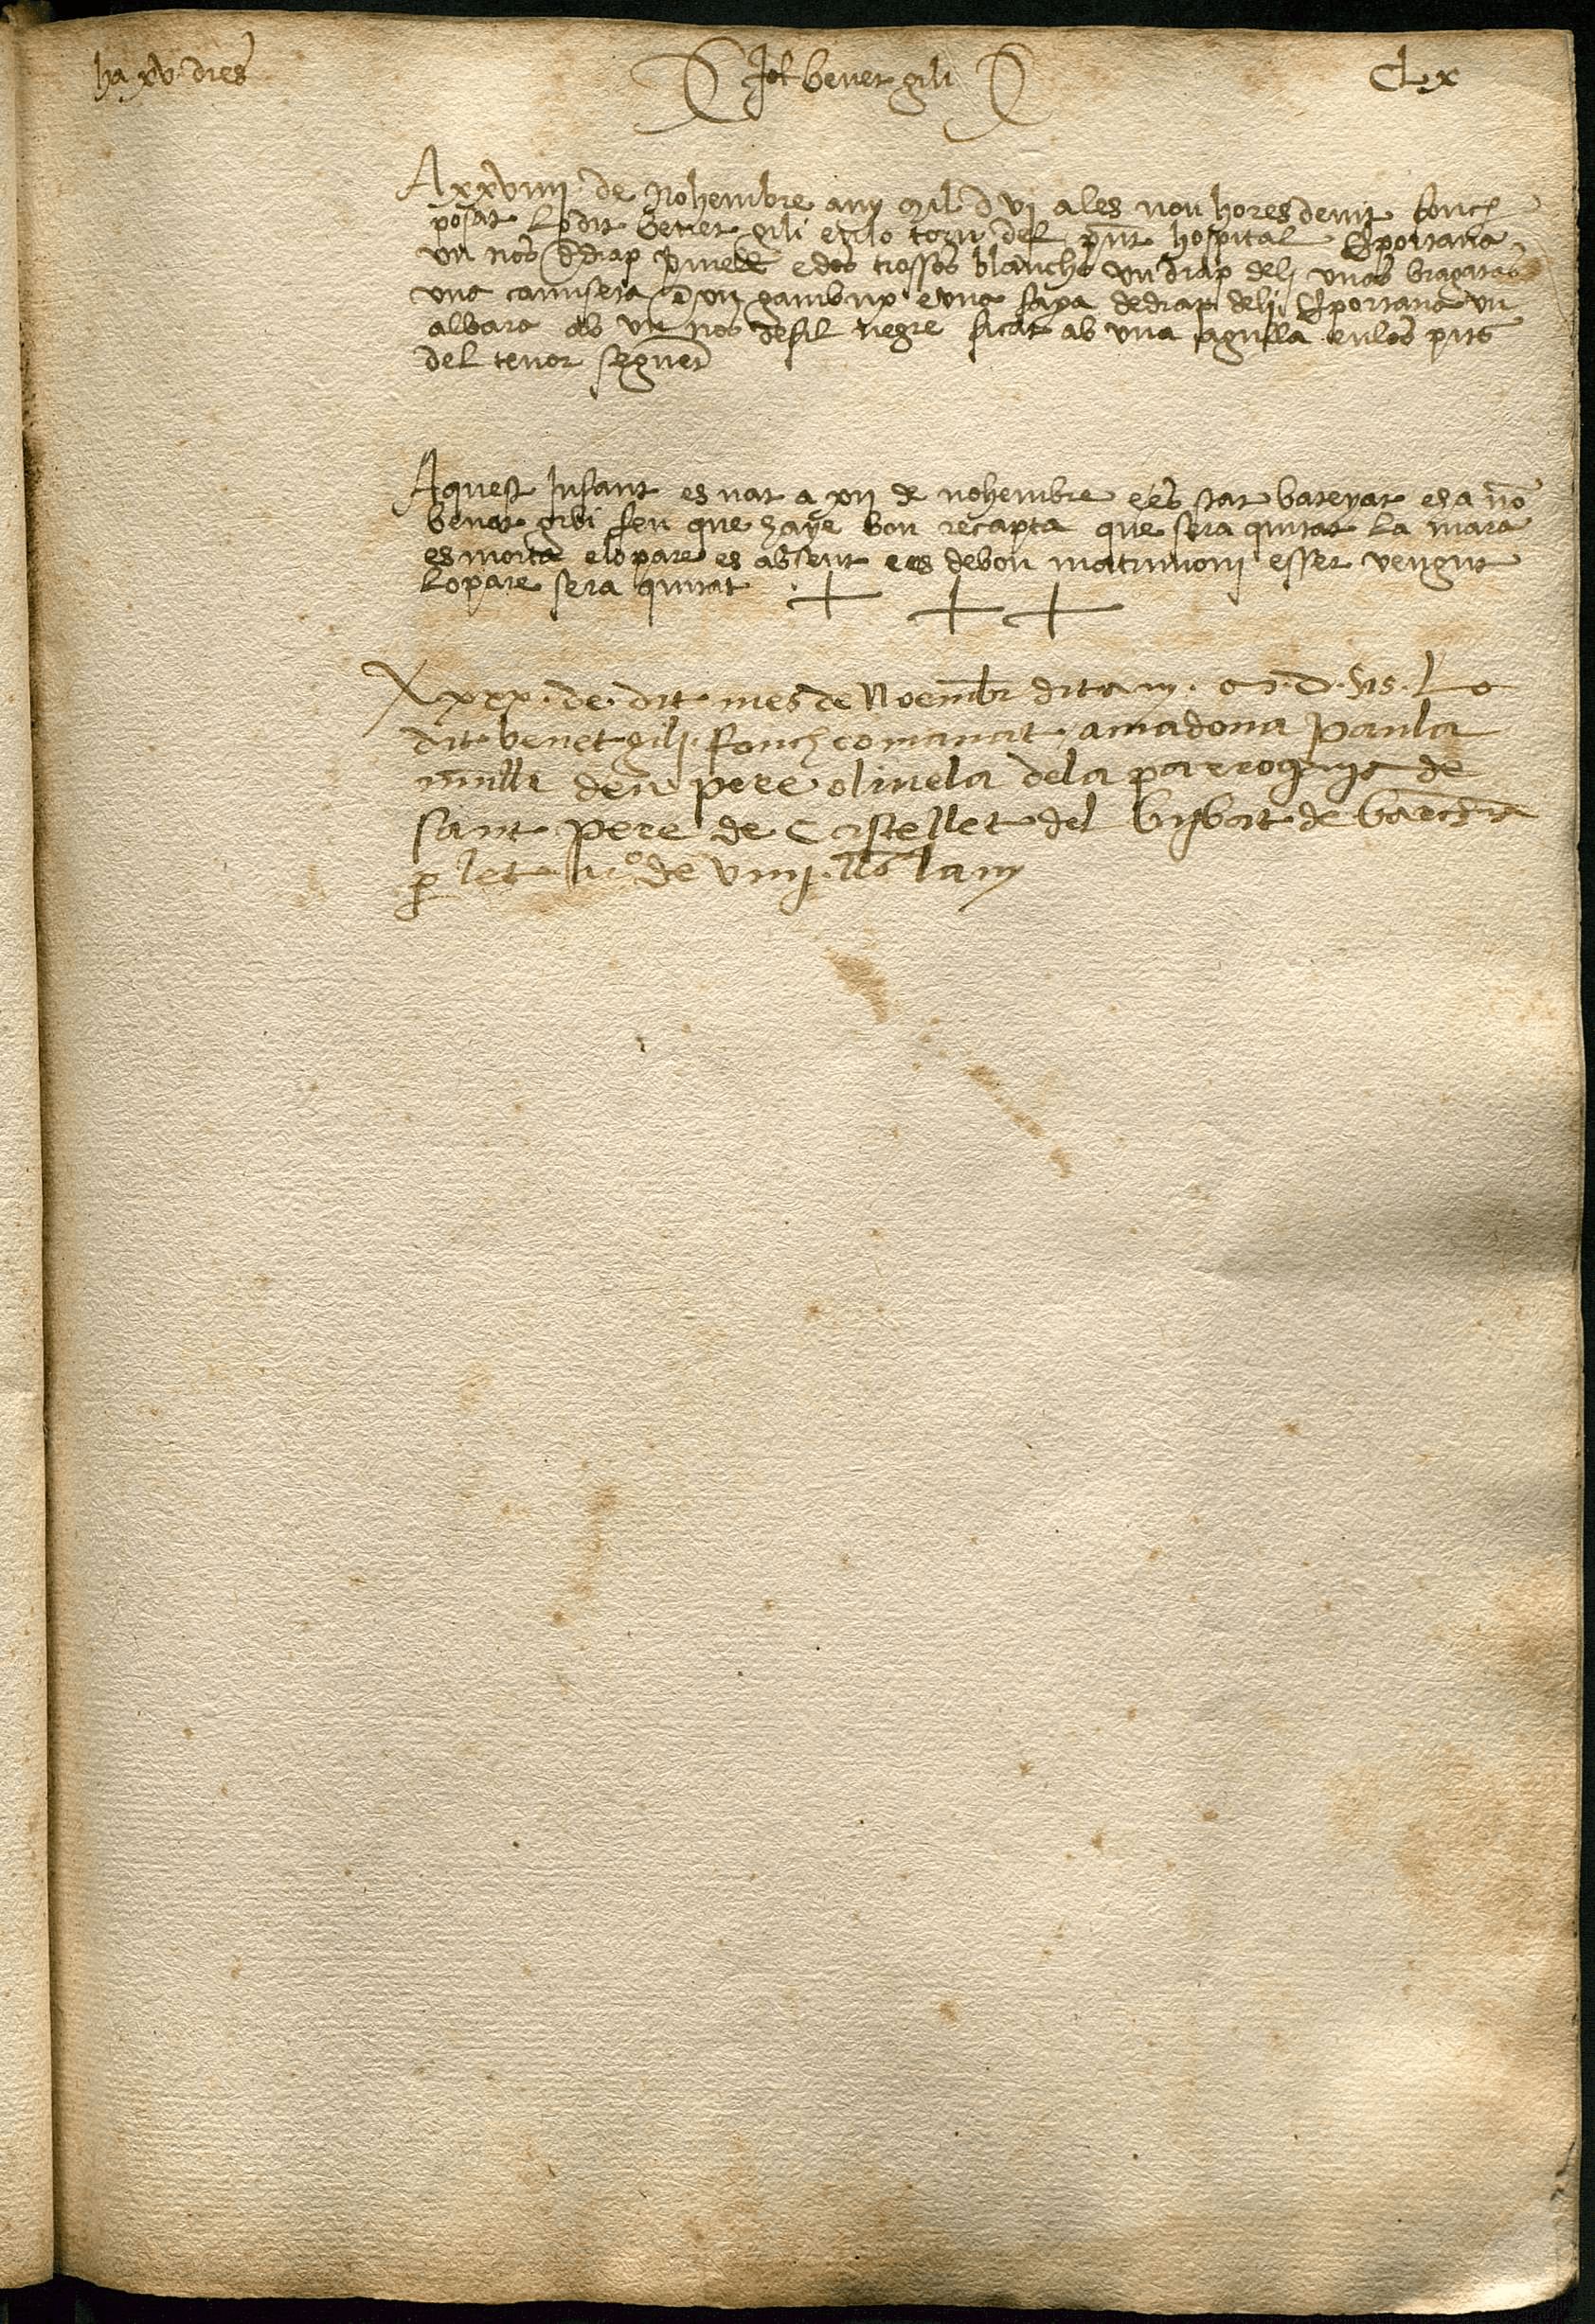 ha xv dies
Jof benet gili
CLx
A xxviiii de Nohembre any Mil d vi a les nou hores de nit fonch
posat lo dit benet gili en lo torn del pnt hospital E portava
un nos de drap e dos trossos blanchs un drap de li unas bragatas
una camiseta e un gambux e una faxa de drap de li E portava un
albara ab un nos de fil negre ficat ab una agulla en los pits
del tenor seguent
Aquest Infant es nat a xii de nohembre e es stat bateyat e ha nō
benet gili feu que haye bon recapta que sera quitat la mara
es morta e lo pare es absent e es de bon matrimoni esser vengut
lo pare sera quitat
A xxx de dit mes de Noembr dit any M D vis Lo
dit benet gili fonch comanat a madona Paula
mullr den pere olivela dela parroquia de
sant Pere de Castellet del bisbat de barcha
p let a rº de viiii lls lany